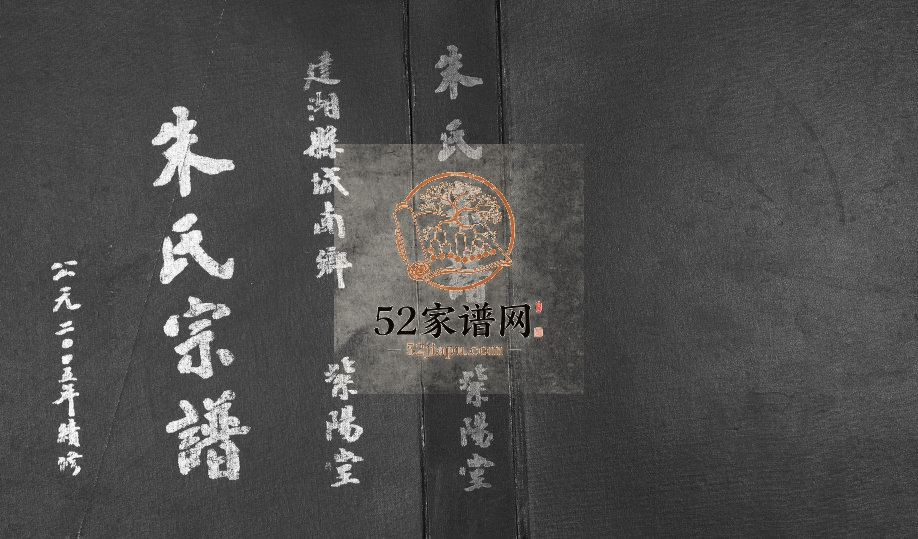 朱氏
紫陽堂
建湖縣城南鄉 紫陽堂
朱氏宗譜
公元二〇〇五年續修
52家谱网
52jiapu.com